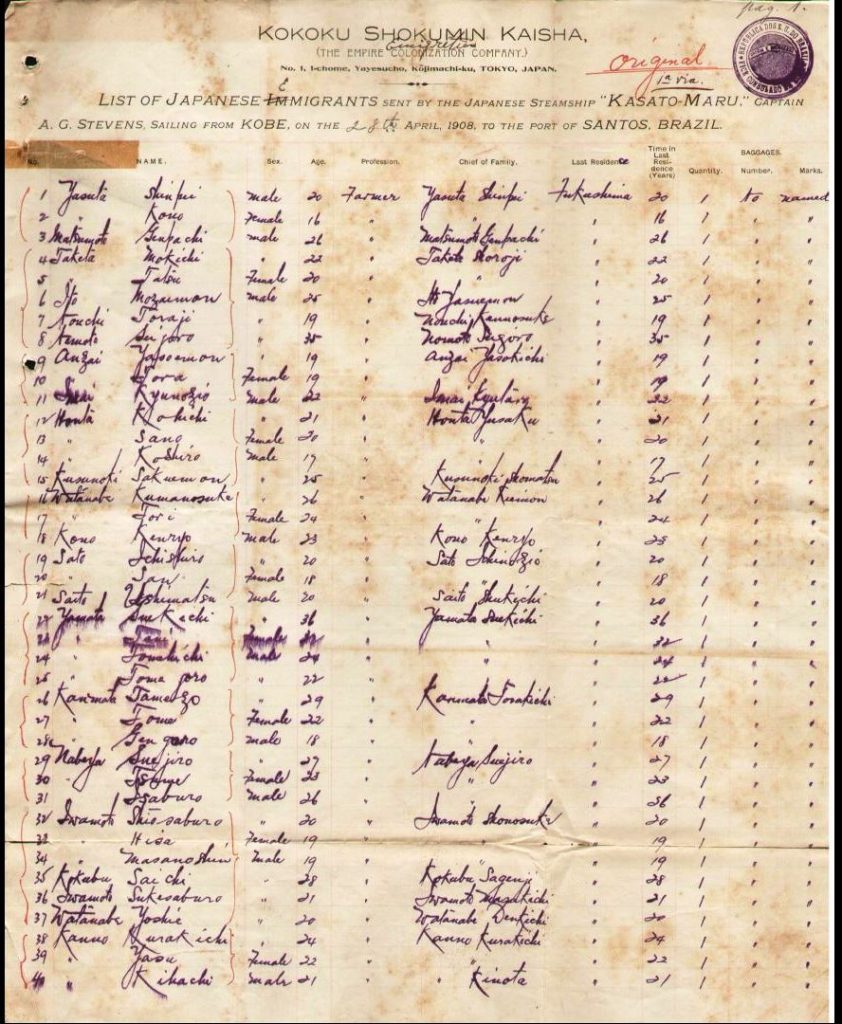 pag. 1.
KOKOKU SHOKUMIN KAISHA,
Emigration
(THE EMPIRE COLONIZATION COMPANY.)
No. 1, 1-chome, Yayesucho, Kojimachi-ku, TOKYO, JAPAN.
Original
1ª via.
E
LIST OF JAPANESE IMMIGRANTS SENT BY THE JAPANESE STEAMSHIP "KASATO-MARU," CAPTAIN
A. G. STEVENS, SAILING FROM KOBE, ON THE 28th APRIL, 1908, TO THE PORT OF SANTOS, BRAZIL.
No. NAME. Sex. Age. Profession. Chief of Family. Last Residence Time in Last Residence (Years) BAGGAGES. Quantity. Number. Marks.
1 Yasuta Shinpei male 20 Farmer Yasuta Shinpei Fukushima 20 1 to named
2 " Kono Female 16 " " " 16 1 " "
3 Matsumoto Genpachi male 26 " Matsumoto Genpachi " 26 1 " "
4 Taketa Mokichi " 22 " Taketa " 22 1 " "
5 " Tatsu Female 20 " " " 20 1 " "
6 Ito male 25 " Ito " 25 1 " "
7 Toraji " 19 " " 19 1 " "
8 " 35 " " 35 1 " "
9 Anzai " 19 " Anzai Yasokichi " 19 1 " "
10 " Tora Female 19 " " " 19 1 " "
11 Imai male 22 " Imai " 22 1 " "
12 Honta " 21 " Honta Yusaku " 21 1 " "
13 " Sano Female 20 " " " 20 1 " "
14 " Koshiro male 17 " " " 17 1 " "
15 Kusunoki Sakuemon " 25 " Kusunoki Shomatsu " 25 1 " "
16 Watanabe Kumanosuke " 26 " Watanabe " 26 1 " "
17 " Tori Female 24 " " " 24 1 " "
18 Kono Kenryo male 23 " Kono Kenryo " 23 1 " "
19 Sato " 20 " Sato " 20 1 " "
20 " San Female 18 " " " 18 1 " "
21 Saito male 20 " Saito Shukichi " 20 1 " "
22 Yamata Suekichi " 36 " Yamata Suekichi " 36 1 " "
23 " Tani Female 32 " " " 32 1 " "
24 " male 24 " " " 24 1 " "
25 " Tomajoro " 22 " " " 22 1 " "
26 Kanimata " 29 " Kanimata Torakichi " 29 1 " "
27 " Tome Female 22 " " " 22 1 " "
28 " Gengoro male 18 " " " 18 1 " "
29 Nabeya Suejiro " 27 " Nabeya Suejiro " 27 1 " "
30 " Female 23 " " " 23 1 " "
31 " Isaburo male 26 " " " 26 1 " "
32 Iwamoto " 20 " Iwamoto Shonosuke " 20 1 " "
33 " Hisa Female 19 " " " 19 1 " "
34 " Masanoshin male 19 " " " 19 1 " "
35 Kokubu Saichi " 28 " Kokubu Sagenji " 28 1 " "
36 Iwamoto Sukesaburo " 21 " Iwamoto Masakichi " 21 1 " "
37 Watanabe Yoshie " 20 " Watanabe Denkichi " 20 1 " "
38 Kanno Kurakichi " 24 " Kanno Kurakichi " 24 1 " "
39 " Yasu Female 22 " " " 22 1 " "
40 " Kihachi male 21 " " Kinota " 21 1 " "